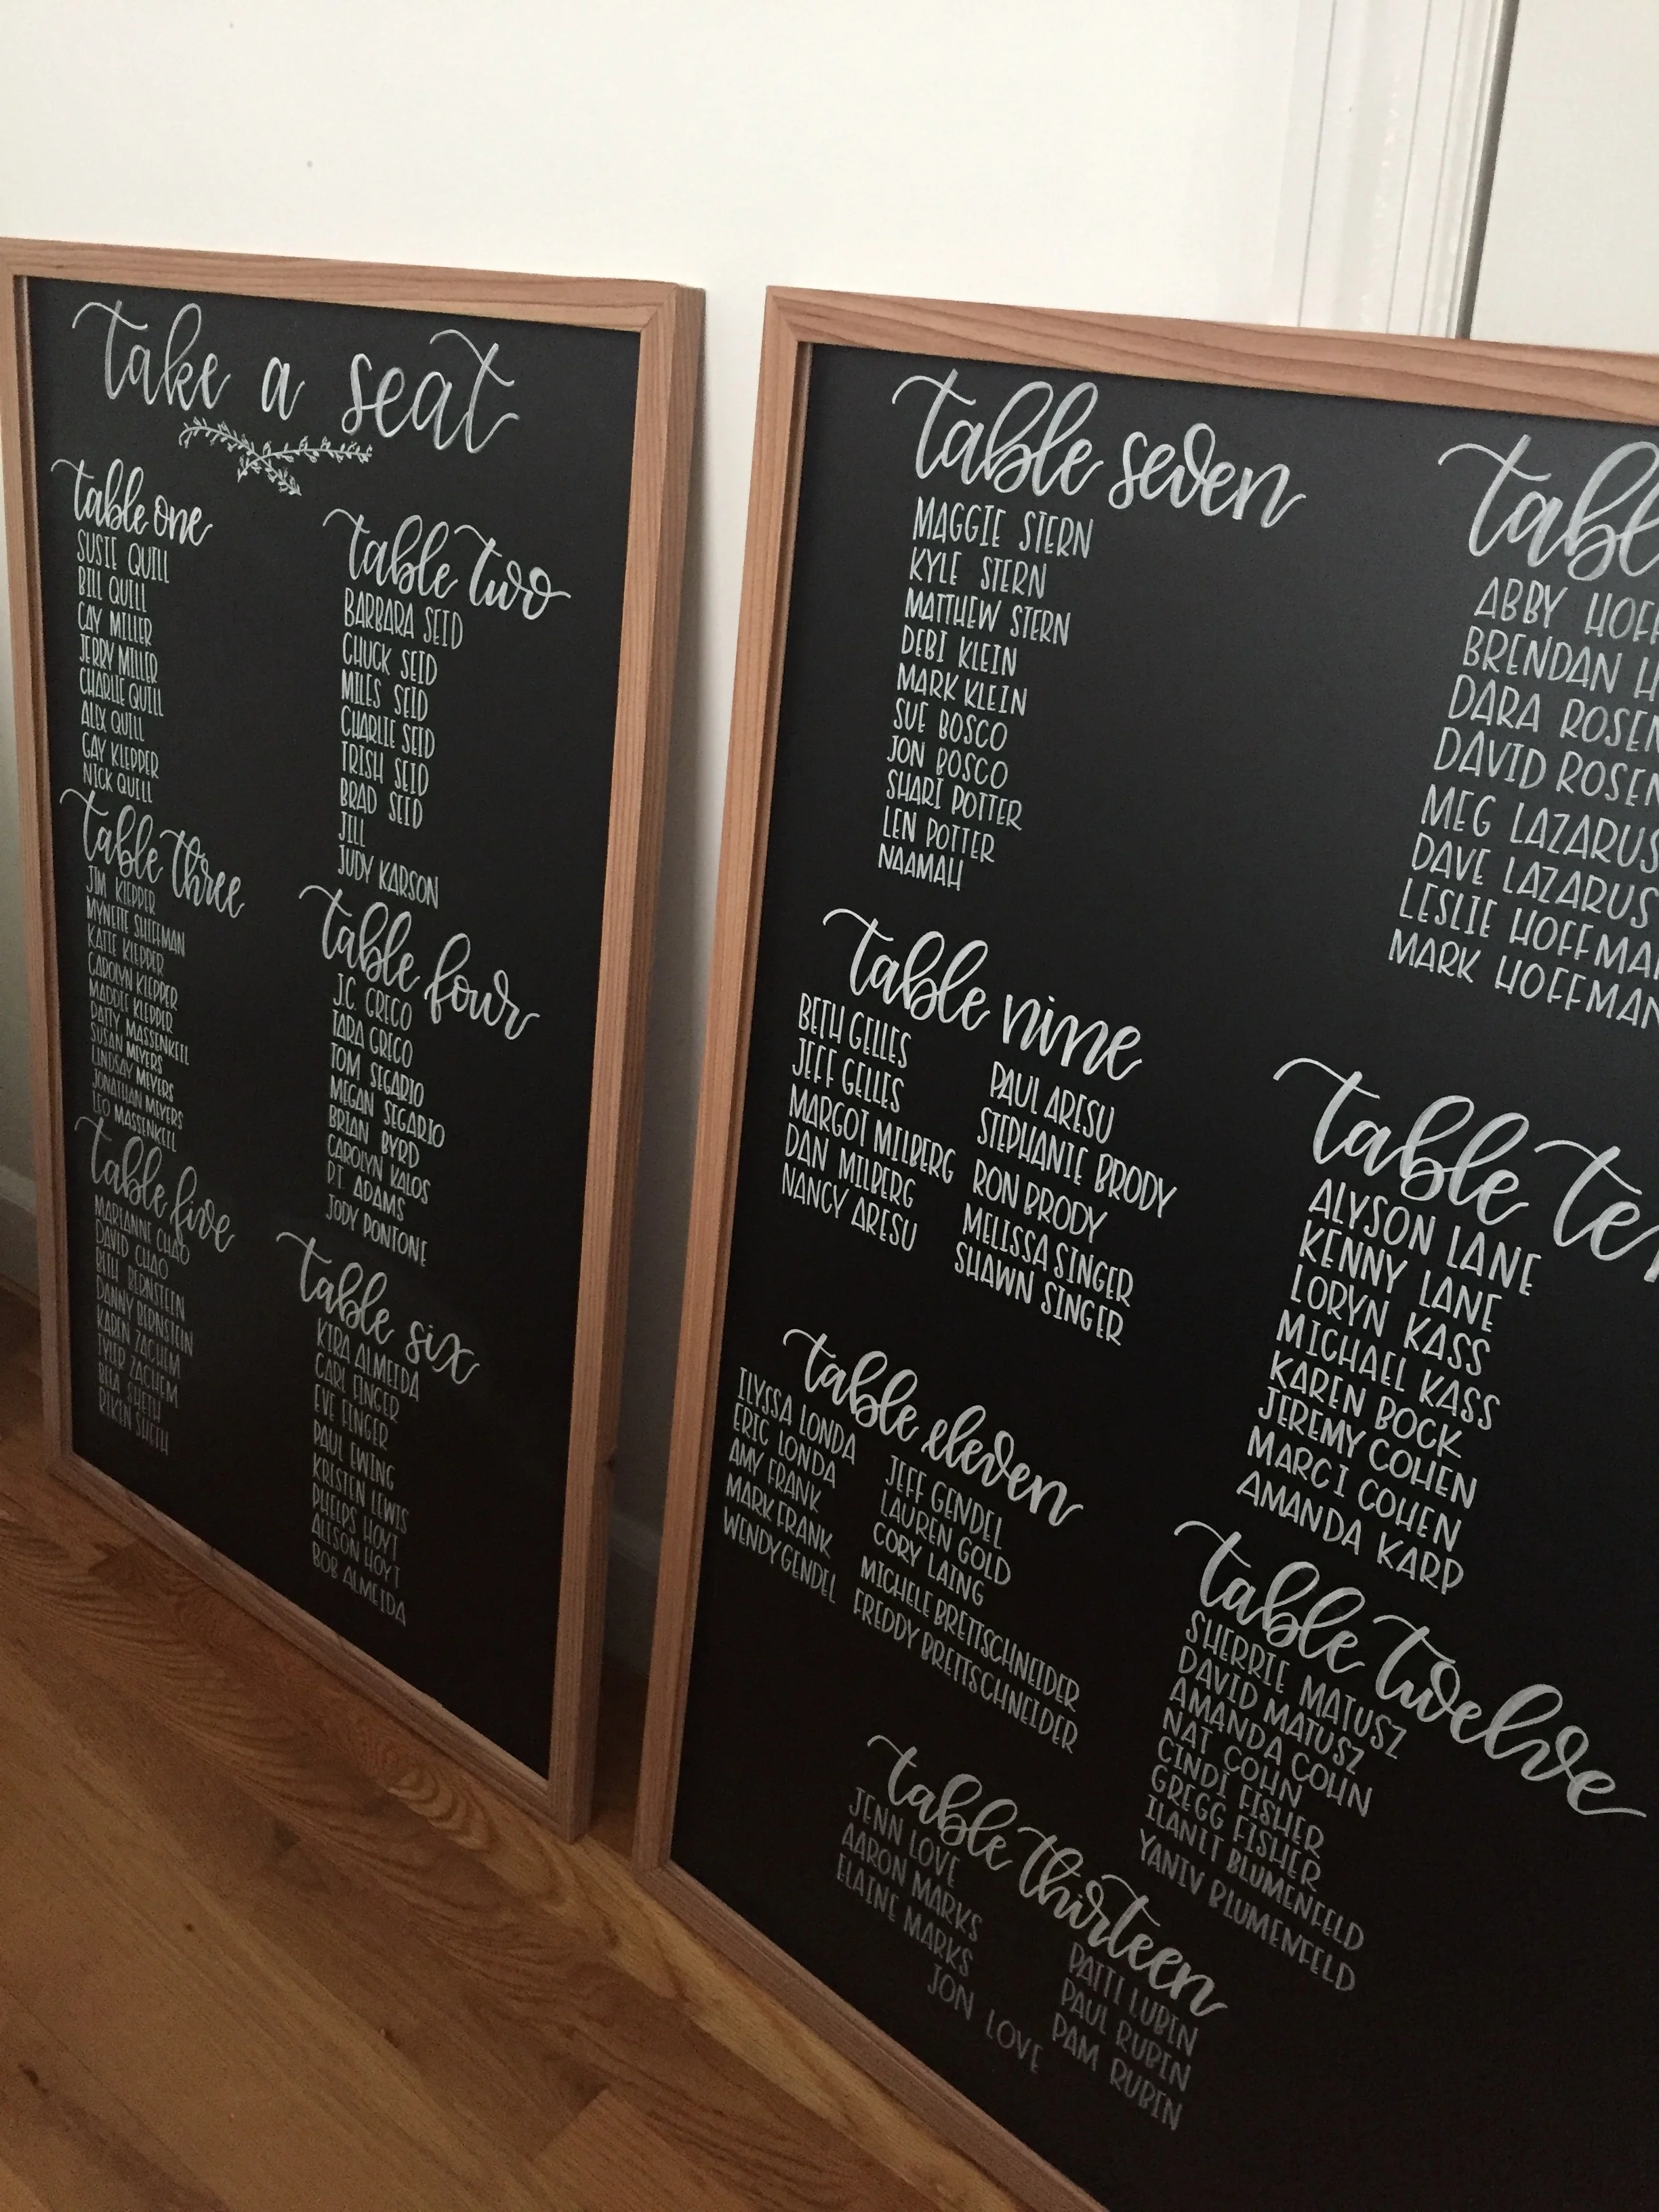 take a seat
table one
SUSIE QUILL
BILL QUILL
CAY MILLER
JERRY MILLER
CHARLIE QUILL
ALEX QUILL
GAY KLEPPER
NICK QUILL
table two
BARBARA SEID
CHUCK SEID
MILES SEID
CHARLIE SEID
TRISH SEID
BRAD SEID
JILL
JUDY KARSON
table three
JIM KLEPPER
MYNETTE SHIFFMAN
KATIE KLEPPER
CAROLYN KLEPPER
MADDIE KLEPPER
PATTY MASSENKEIL
SUSAN MEYERS
LINDSAY MEYERS
JONATHAN MEYERS
LEO MASSENKEIL
table four
J.C. GRECO
TARA GRECO
TOM SEGARIO
MEGAN SEGARIO
BRIAN BYRD
CAROLYN KALOS
P.T. ADAMS
JODY PONTONE
table five
MARIANNE CHAO
DAVID CHAO
BETH BERNSTEIN
DANNY BERNSTEIN
KAREN ZACHEM
TYLER ZACHEM
SHETH
SHETH
table six
KIRA ALMEIDA
CARL FINGER
EVE FINGER
PAUL EWING
KRISTEN LEWIS
PHELPS HOYT
ALISON HOYT
BOB ALMEIDA
table seven
MAGGIE STERN
KYLE STERN
MATTHEW STERN
DEBI KLEIN
MARK KLEIN
SUE BOSCO
JON BOSCO
SHARI POTTER
LEN POTTER
NAAMAH
tabl
ABBY HOFF
BRENDAN H
DARA ROSEN
DAVID ROSEN
MEG LAZARUS
DAVE LAZARUS
LESLIE HOFFMAN
MARK HOFFMAN
table nine
BETH GELLES
JEFF GELLES
MARGOT MILBERG
DAN MILBERG
NANCY ARESU
PAUL ARESU
STEPHANIE BRODY
RON BRODY
MELISSA SINGER
SHAWN SINGER
table ten
ALYSON LANE
KENNY LANE
LORYN KASS
MICHAEL KASS
KAREN BOCK
JEREMY COHEN
MARCI COHEN
AMANDA KARP
table eleven
ILYSSA LONDA
ERIC LONDA
AMY FRANK
MARK FRANK
WENDY GENDEL
JEFF GENDEL
LAUREN GOLD
CORY LAING
MICHELE BRETTSCHNEIDER
FREDDY BRETTSCHNEIDER
table twelve
SHERRIE MATUSZ
DAVID MATUSZ
AMANDA COHN
NAT COHN
CINDI FISHER
GREGG FISHER
ILANIT BLUMENFELD
YANIV BLUMENFELD
table thirteen
JENN LOVE
AARON MARKS
ELAINE MARKS
JON LOVE
PATTI LUBIN
PAUL RUBIN
PAM RUBIN